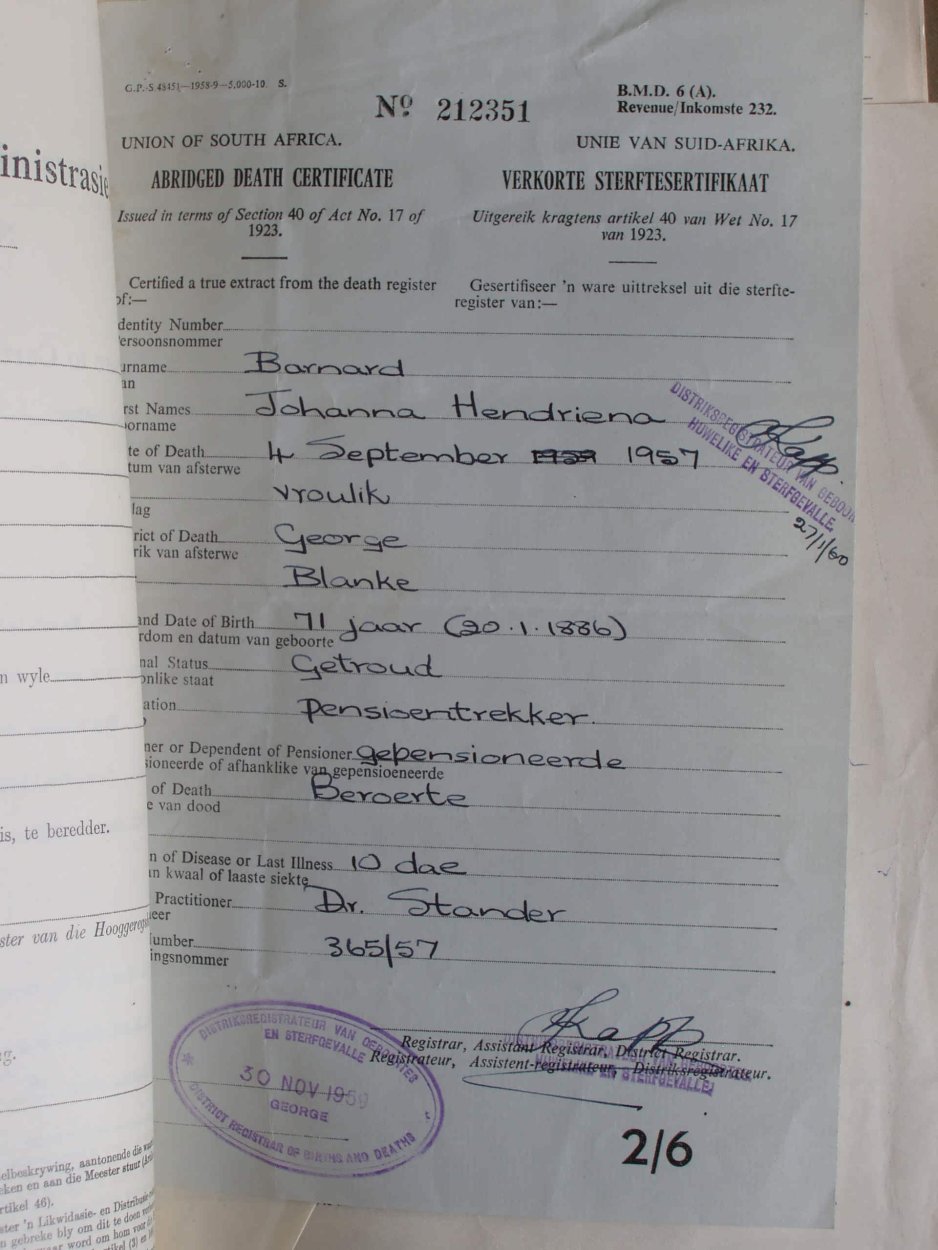 G.P.-S.48451—1958-9—5,000-10 S.
B.M.D. 6 (A).
Revenue/Inkomste 232.
Nº 212351
UNION OF SOUTH AFRICA.
UNIE VAN SUID-AFRIKA.
ABRIDGED DEATH CERTIFICATE
VERKORTE STERFTESERTIFIKAAT
Issued in terms of Section 40 of Act No. 17 of
1923.
Uitgereik kragtens artikel 40 van Wet No. 17
van 1923.
Certified a true extract from the death register
of:—
Gesertifiseer 'n ware uittreksel uit die sterfte-
register van:—
dentity Number
ersoonsnommer
urname Barnard
an
rst Names Johanna Hendriena
oorname
te of Death 4 September 1959 1957
tum van afsterwe
vroulik
lag
rict of Death George
rik van afsterwe
Blanke
and Date of Birth 71 jaar (20.1.1886)
rdom en datum van geboorte
nal Status Getroud
onlike staat
ation Pensioentrekker.
ner or Dependent of Pensioner gepensioneerde
sioneerde of afhanklike van gepensioeneerde
of Death Beroerte
e van dood
n of Disease or Last Illness 10 dae
an kwaal of laaste siekte
Practitioner Dr. Stander
eer
umber 365/57
ingsnommer
DISTRIKSREGISTRATEUR VAN GEBOOR
HUWELIKE EN STERFGEVALLE
Kapp.
27/1/60
Kapp
Registrar, Assistant Registrar, District Registrar.
Registrateur, Assistent-registrateur, Distriksregistrateur.
DISTRIKSREGISTRATEUR VAN GEBOORTES
EN STERFGEVALLE
30 NOV 1959
GEORGE
DISTRICT REGISTRAR OF BIRTHS AND DEATHS
2/6
inistrasie
n wyle
is, te beredder.
ster van die Hooggeregs
g.
elbeskrywing, aantonende die
eken en aan die Meester stuur
rtikel 46).
ster 'n Likwidasie- en Distribusie
n gebreke bly om dit te doen
word om hom voor